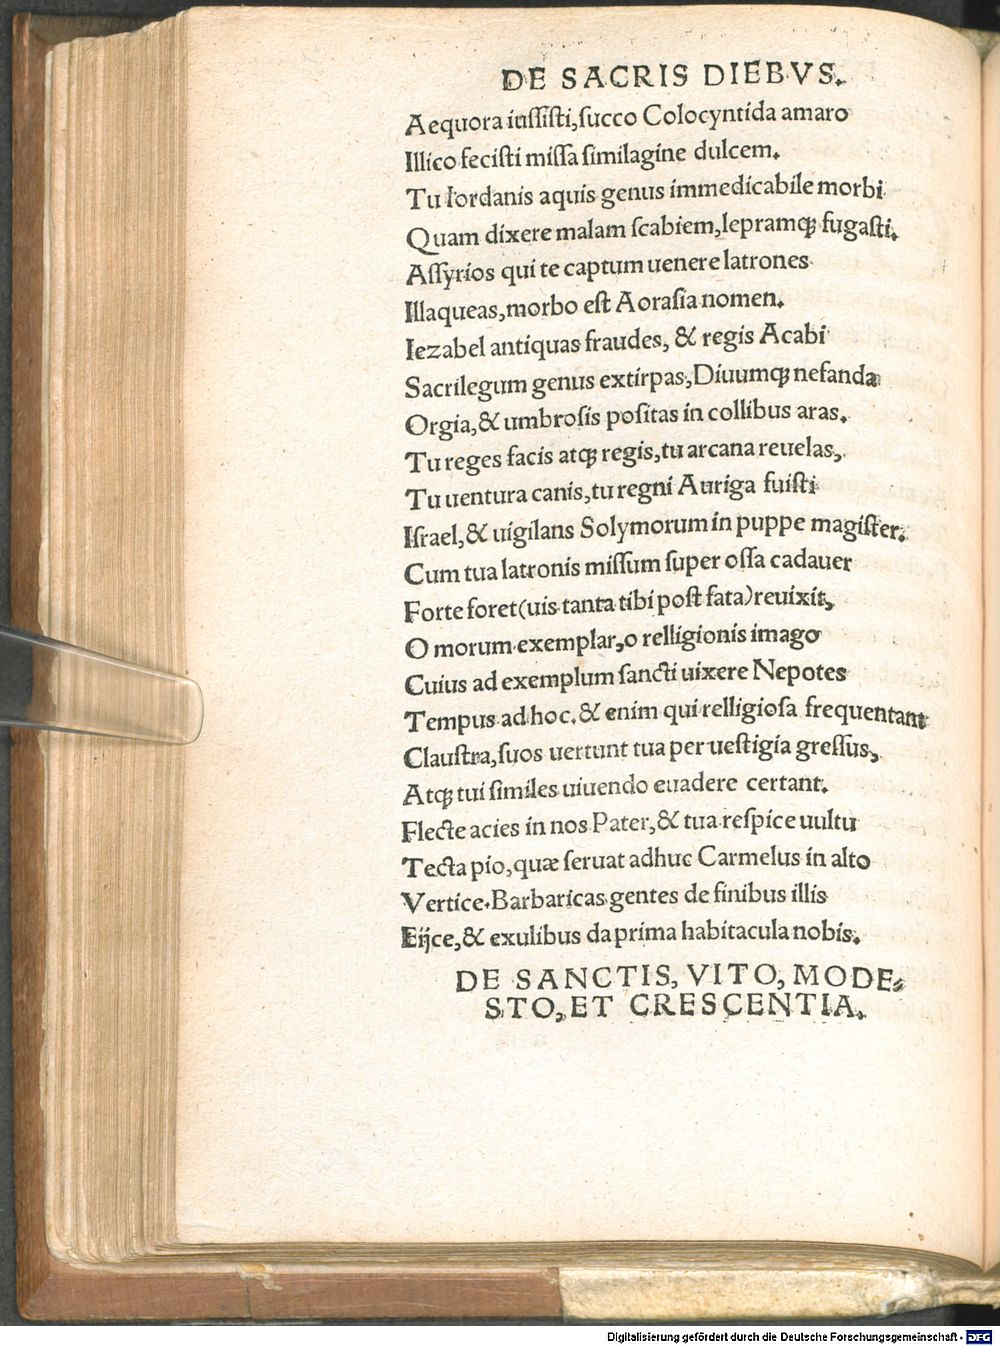 DE SACRIS DIEBVS.
Aequora iussisti, succo Colocyntida amaro
Illico fecisti missa similagine dulcem.
Tu Iordanis aquis genus immedicabile morbi
Quam dixere malam scabiem, lepramqꝫ fugasti.
Assyrios qui te captum uenere latrones
Illaqueas, morbo est Aorasia nomen.
Iezabel antiquas fraudes, & regis Acabi
Sacrilegum genus extirpas, Diuumqꝫ nefanda
Orgia, & umbrosis positas in collibus aras.
Tu reges facis atqꝫ regis, tu arcana reuelas,
Tu uentura canis, tu regni Auriga fuisti
Israel, & uigilans Solymorum in puppe magister.
Cum tua latronis missum super ossa cadauer
Forte foret (uis tanta tibi post fata) reuixit,
O morum exemplar, o relligionis imago
Cuius ad exemplum sancti uixere Nepotes
Tempus ad hoc. & enim qui relligiosa frequentant
Claustra, suos uertunt tua per uestigia gressus,
Atqꝫ tui similes uiuendo euadere certant.
Flecte acies in nos Pater, & tua respice uultu
Tecta pio, quæ seruat adhuc Carmelus in alto
Vertice. Barbaricas gentes de finibus illis
Eijce, & exulibus da prima habitacula nobis.
DE SANCTIS, VITO, MODE-
STO, ET CRESCENTIA.
Digitalisierung gefördert durch die Deutsche Forschungsgemeinschaft - DFG